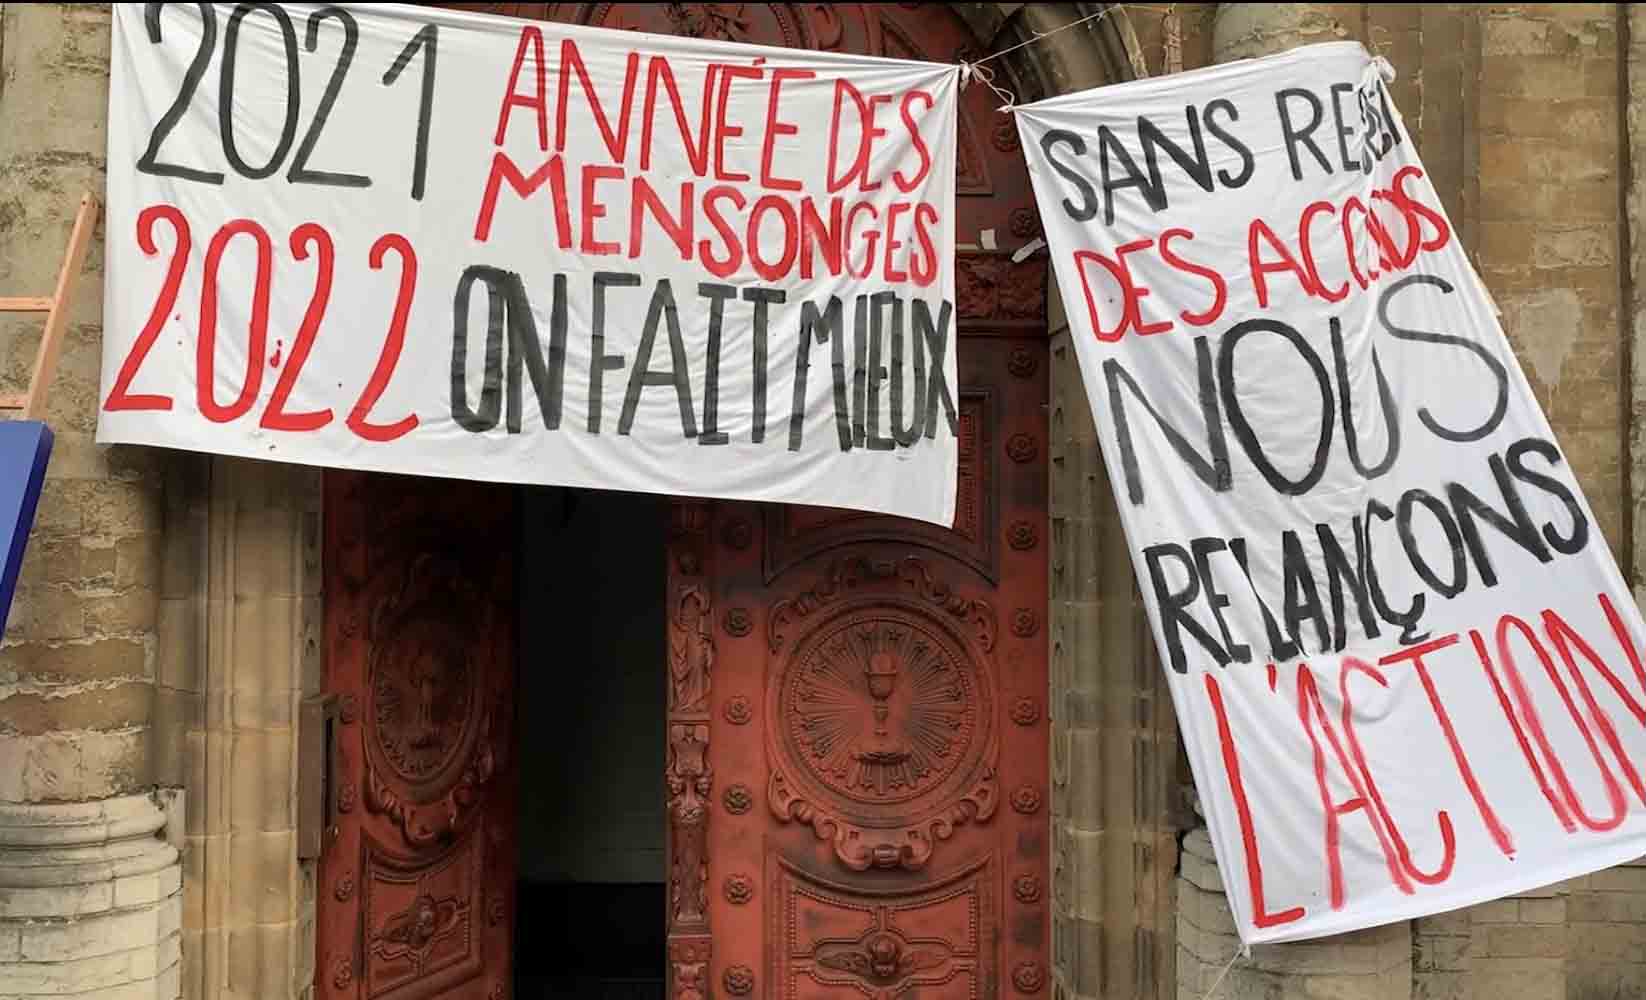 2021 ANNÉE DES
MENSONGES
2022 ON FAIT MIEUX
SANS
DES ACCORDS
NOUS
RELANÇONS
L'ACTION